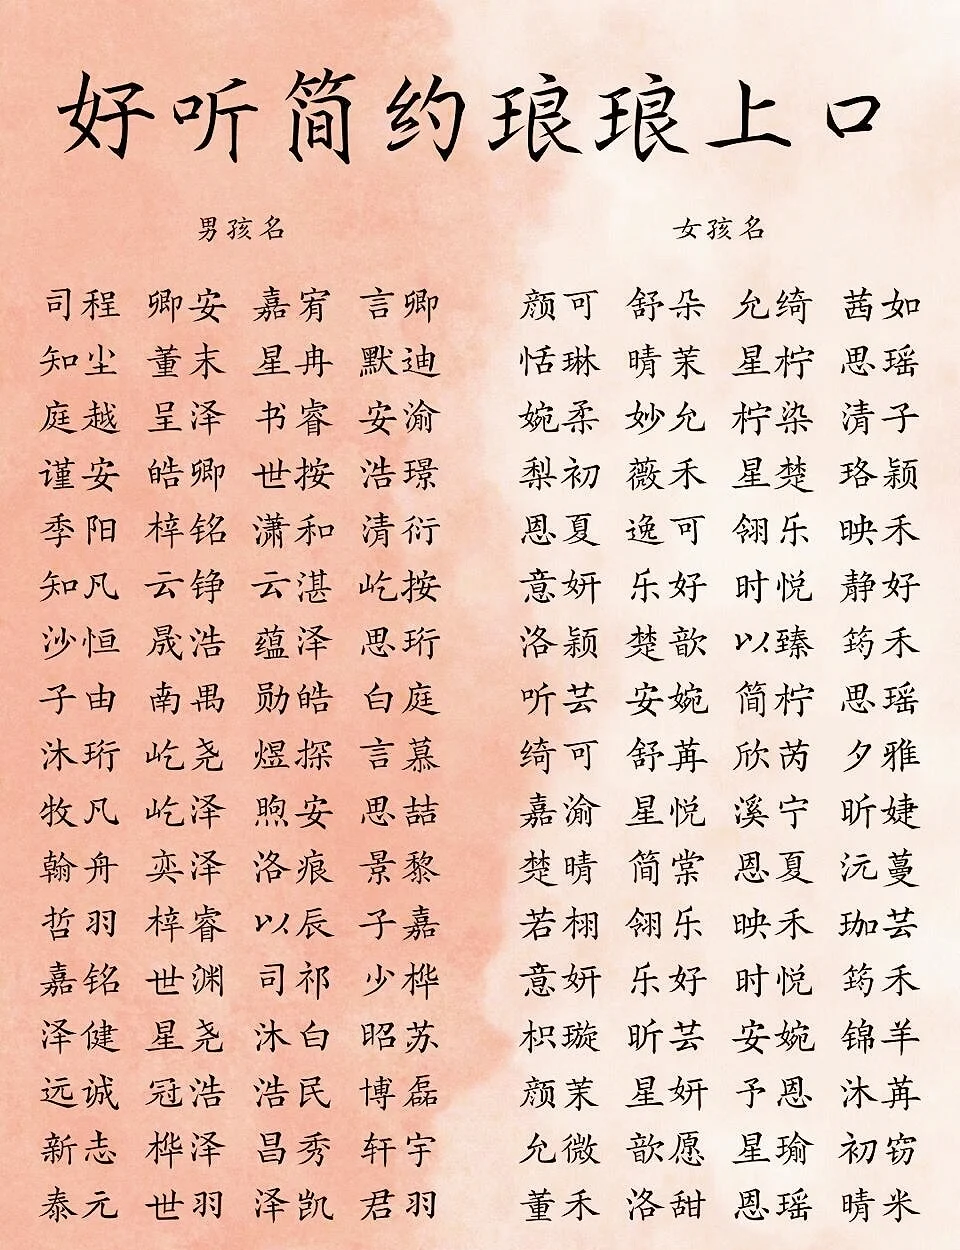 好听简约琅琅上口
男孩名 女孩名
司程 卿安 嘉宥 言卿 颜可 舒朵 允绮 茜如
知尘 董末 星冉 默迪 恬琳 晴茉 星柠 思瑶
庭越 呈泽 书睿 安渝 婉柔 妙允 柠染 清子
谨安 皓卿 世按 浩璟 梨初 薇禾 星楚 珞颖
季阳 梓铭 潇和 清衍 恩夏 逸可 翎乐 映禾
知凡 云铮 云湛 屹按 意妍 乐好 时悦 静好
沙恒 晟浩 蕴泽 思珩 洛颖 楚歆 以臻 筠禾
子由 南禺 勋皓 白庭 听芸 安婉 简柠 思瑶
沐珩 屹尧 煜探 言慕 绮可 舒苒 欣芮 夕雅
牧凡 屹泽 煦安 思喆 嘉渝 星悦 溪宁 昕婕
翰舟 奕泽 洛痕 景黎 楚晴 简棠 恩夏 沅蔓
哲羽 梓睿 以辰 子嘉 若栩 翎乐 映禾 珈芸
嘉铭 世渊 司祁 少桦 意妍 乐好 时悦 筠禾
泽健 星尧 沐白 昭苏 枳璇 昕芸 安婉 锦羊
远诚 冠浩 浩民 博磊 颜茉 星妍 予恩 沐苒
新志 桦泽 昌秀 轩宇 允微 歆愿 星瑜 初窃
泰元 世羽 泽凯 君羽 董禾 洛甜 恩瑶 晴米